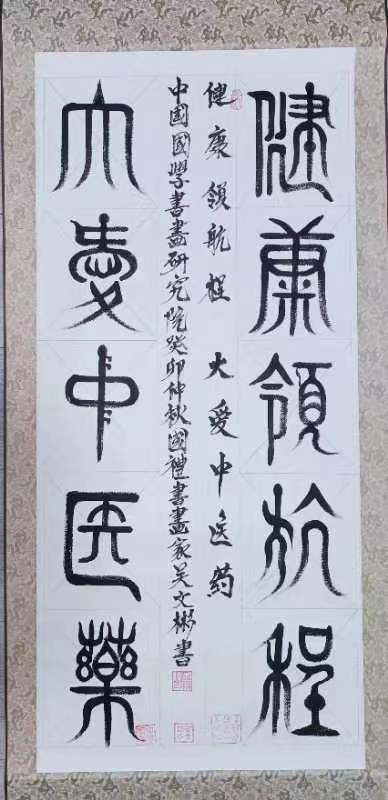 健康領航程
健康领航程 大爱中医药
中国國學書畫研究院癸卯仲秋國禮書畫家吴文彬書
大愛中医藥